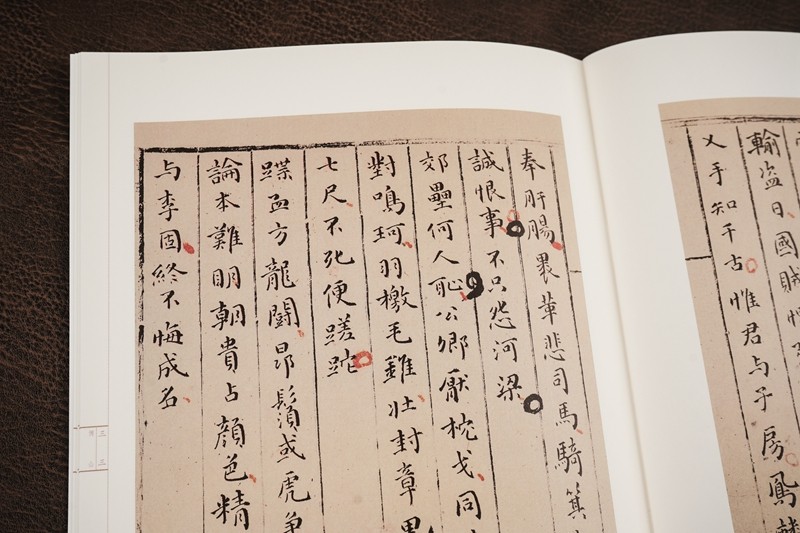 輸盜日國賊
乂手知千古惟君与子房鳳
奉肝腸裹革悲司馬騎箕
誠恨事不只怨河梁
郊壘何人恥公卿厭枕戈同
對鳴珂羽檄毛雞壮封章
七尺不死便蹉跎
蹀血方龍鬪昂鬚或虎
論本難明朝貴占顏色精
与李固終不悔成名